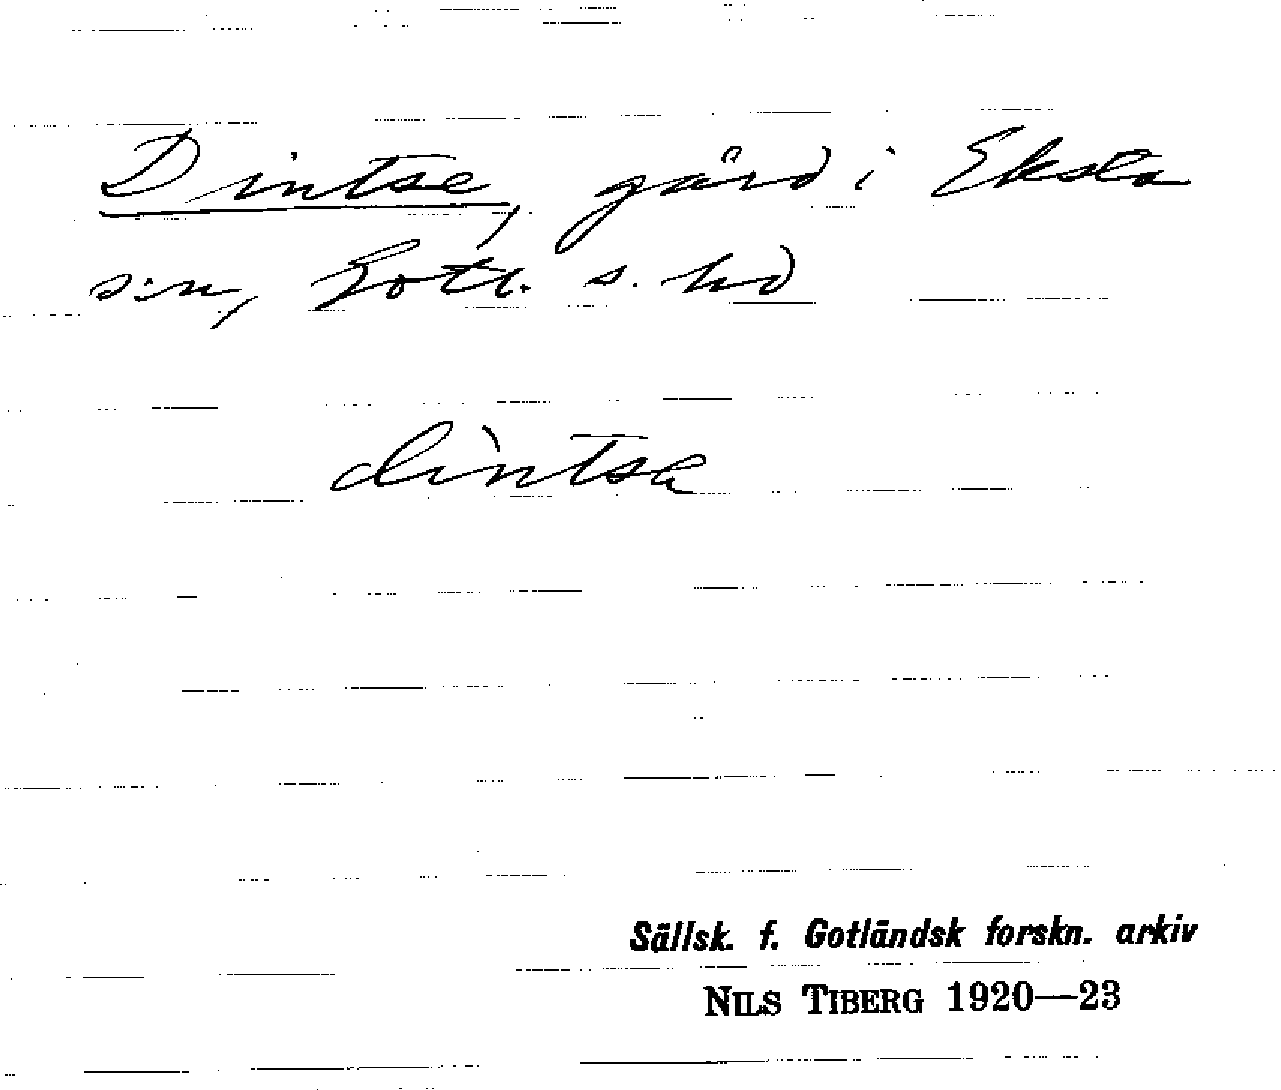 Dintse, gård i Eksta
s:n, Gotl. s. hd
dìntsa
Sällsk. f. Gotländsk forskn. arkiv
NILS TIBERG 1920—23